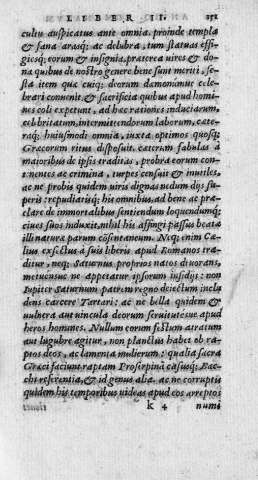 LIBER II. 151
cultu auspicatus ante omnia. proinde templa
& fana arasq; ac delubra, tum statuas effi-
giesq; eorum & insignia, præterea uires & do-
na quibus de nostro genere bene sunt meriti, fe-
sta item quæ cuiq; deorum dæmonumue cele-
brari conuenit & sacrificia quibus apud homi-
nes coli expetunt, ad hæc rationes induciarum,
celebritatum, intermittendorum laborum, cæte-
raq; huiusmodi omnia, iuxta optimos quosq;
Græcorum ritus disposuit. cæterum fabulas à
maioribus de ipsis traditas, probra eorum con-
tinentes ac crimina, turpes censuit & inutiles,
ac ne probis quidem uiris dignas nedum dijs su-
peris: repudiatisq; his omnibus, ad bene ac præ-
clare de immortalibus sentiendum loquendumq;
ciues suos induxit, nihil his affingi passus beatæ
illi naturæ parum cōsentaneum. Neq; enim Cæ-
lius exsectus à suis liberis apud Romanos tra-
ditur, neq; Saturnus proprios natos deuorans,
metuensue ne appetatur ipsorum insidijs: non
Iupiter Saturnum patrem regno deiectum inclu
dens carcere Tartari: ac ne bella quidem &
uulnera aut uincula deorum seruitutesue apud
heros homines. Nullum eorum festum atratum
aut lugubre agitur, non planctus habet ob ra-
ptos deos, ac lamenta mulierum: qualia sacra
Græci faciunt raptam Proserpinā casusq; Bac-
chi referentia, & id genus alia. ac ne corruptis
quidem his temporibus uideas apud eos arreptos
k 4 numi